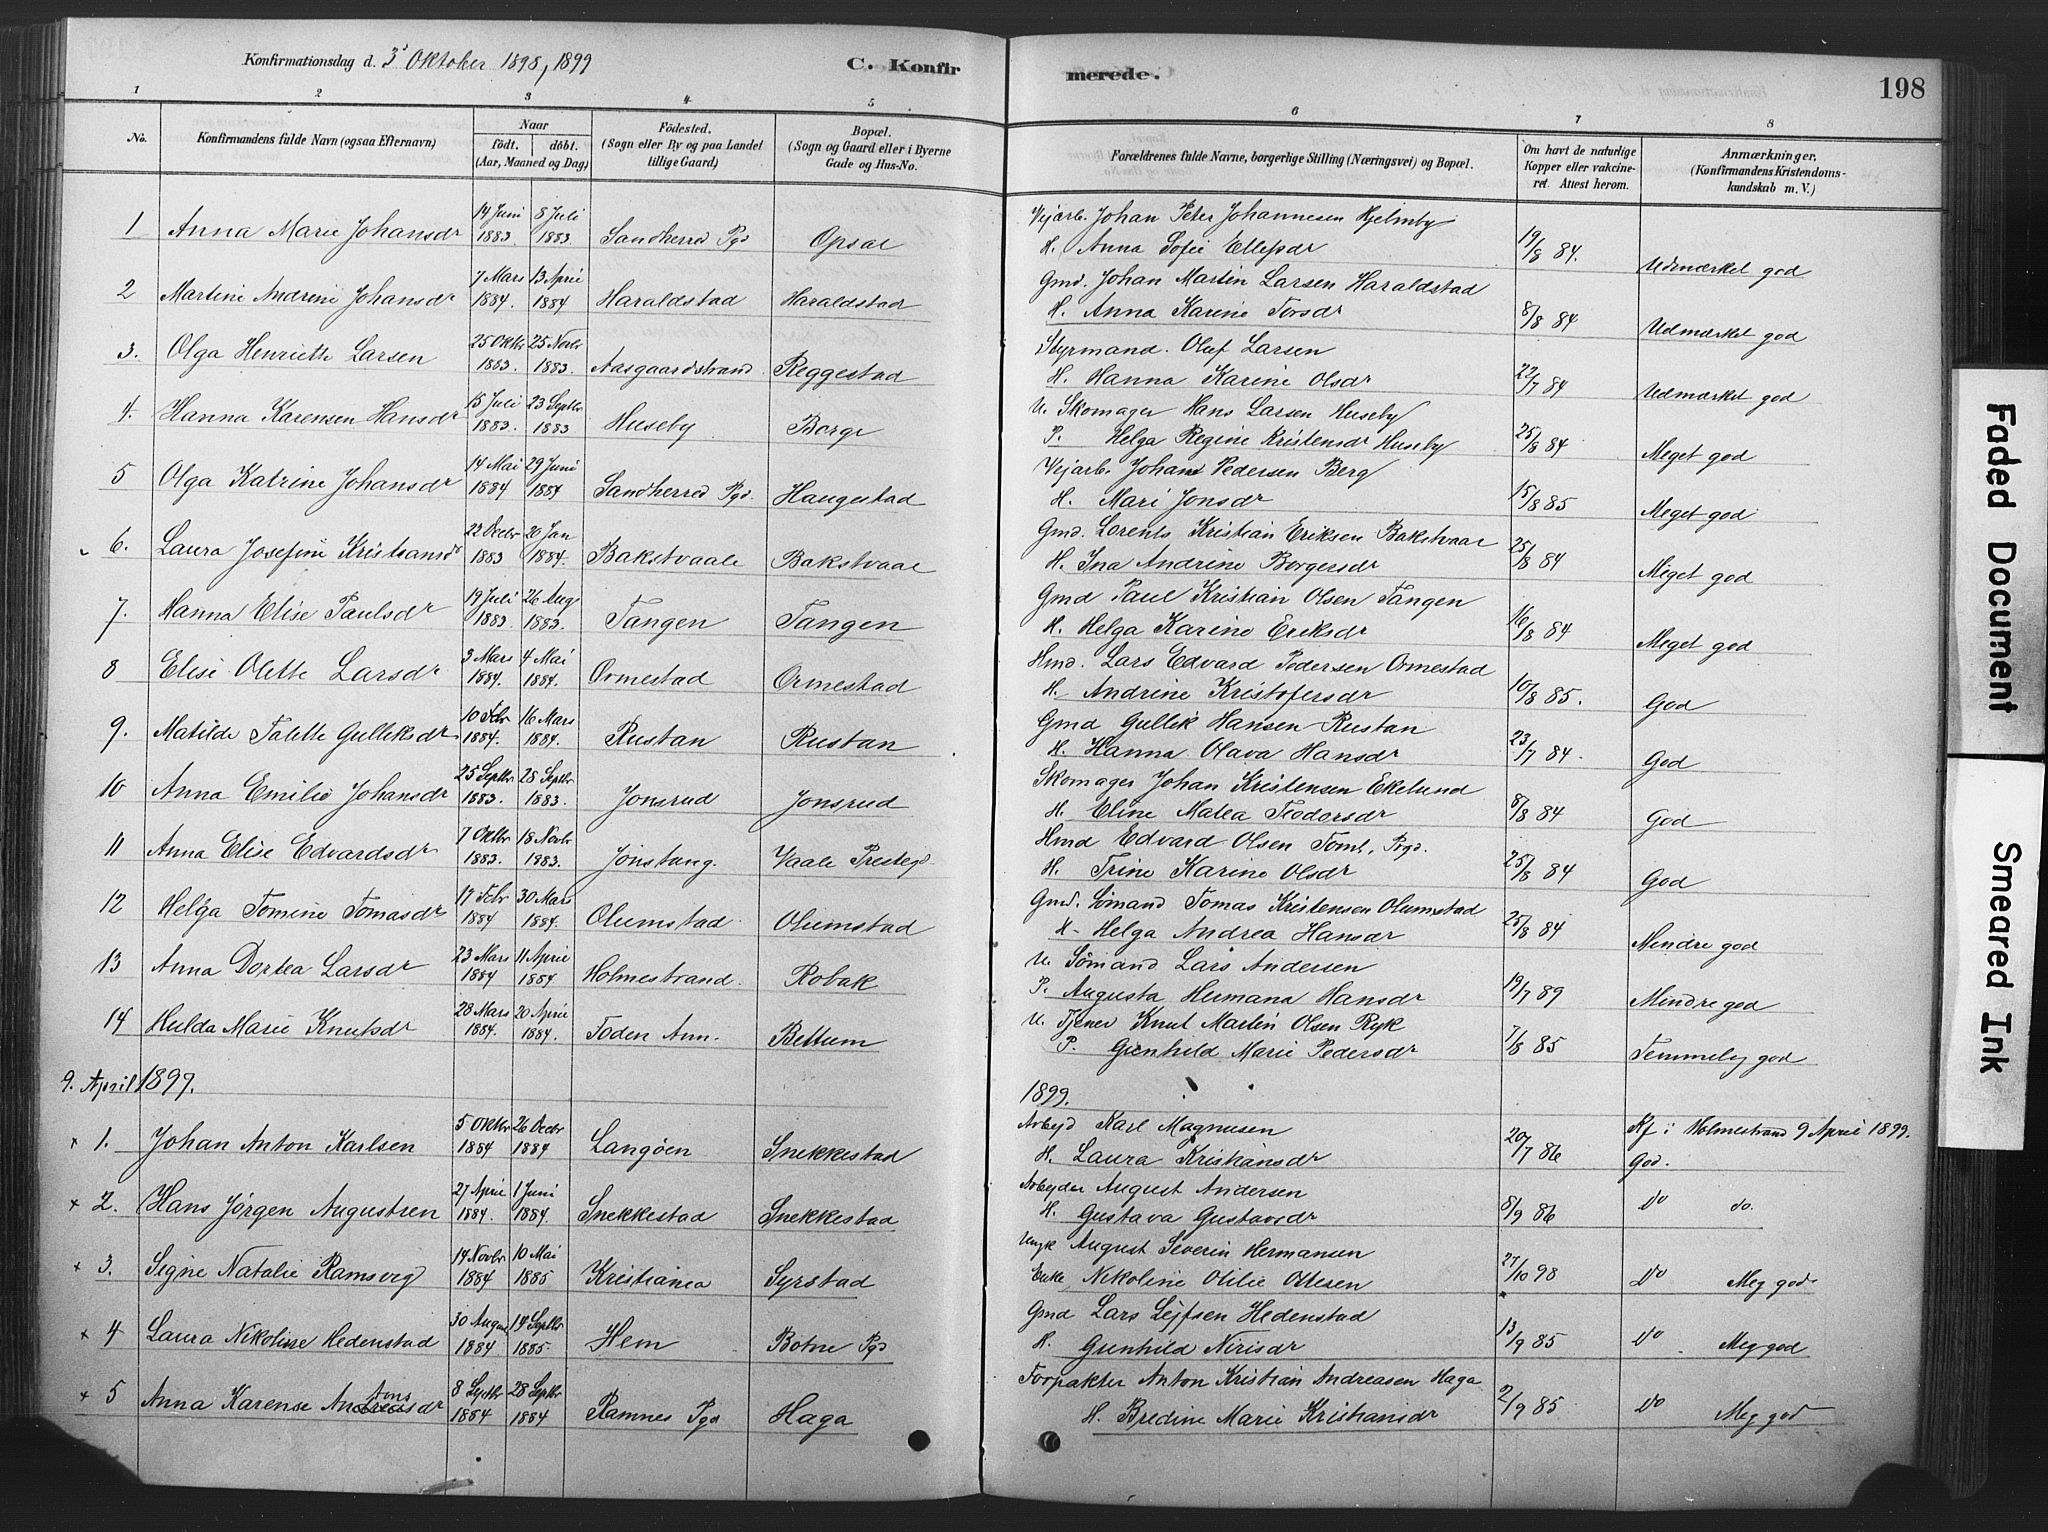 Konfirmationsdag d. 3 Oktober 1898, 1899
C. Konfirmerede.
198
1 2 3 4 5 6 7 8
No.
Konfirmandens fulde Navn (ogsaa Efternavn)
Naar
födt. döbt.
(Aar, Maaned og Dag)
Födested.
(Sogn eller By og paa Landet
tillige Gaard)
Bopæl.
(Sogn og Gaard eller i Byerne
Gade og Hus-No.
Forældrenes fulde Navne, borgerlige Stilling (Næringsvei) og Bopæl.
Om havt de naturlige
Kopper eller vakcine-
ret. Attest herom.
Anmærkninger.
(Konfirmandens Kristendoms-
kundskab m. V.)
1 Anna Marie Johansdr 14 Juni 1883. 8 Juli 1883. Sandherred Pgd Opsal
Vejarb. Johan Peter Johannesen Hjelmby
H. Anna Sofie Ellefsdr 19/8 84. Udmærket god
2 Martine Andrine Johansdr 7 Mars 1884. 13 April 1884 Haraldstad Haraldstad
Gmd. Johan Martin Larsen Haraldstad
H. Anna Karine Torsdr 8/8 84 Udmærket god
3. Olga Henriette Larsen 25 Oktbr 1883. 25 Novbr 1883. Aasgaardstrand Reggestad
Styrmand. Oluf Larsen
H. Hanna Karine Olsdr 22/7 84 Udmærket god
4. Hanna Karensen Hansdr 15 Juli 1883. 23 Septbr 1883 Huseby Borge
U. Skomager Hans Larsen Huseby
P. Helga Regine Kristensdr Huseby 25/8 84 Meget god
5 Olga Katrine Johansdr 14 Mai 1884 29 Juni 1884 Sandherred Pgd. Haugestad
Vejarb. Johan Pedersen Berg
H. Mari Jonsdr 15/8 85 Meget god
6. Laura Josefine Kristiansdr 22 Decbr 1883 20 Jan 1884. Bakstvaale Bakstvaal
Gmd. Lorents Kristian Eriksen Bakstvaal
H. Ina Andrine Borgersdr 25/8 84 Meget god
7. Hanna Elise Paulsdr 19 Juli 1883. 26 Aug 1883. Tangen Tangen
Gmd Paul Kristian Olsen Tangen
H. Helga Karine Eriksdr 16/8 84 Meget god
8 Elise Olette Larsdr 3 Mars 1884. 4 Mai 1884. Ormestad Ormestad
Hmd. Lars Edvard Pedersen Ormestad
H. Andrine Kristofersdr 10/8 85. God
9. Matilde Talette Gulleksdr 10 Febr 1884. 16 Mars 1884. Rustan Rustan
Gmd Gullik Hansen Rustan
H. Hanna Olava Hansdr 23/7 84. God
10 Anna Emilie Johansdr 25 Septbr 1883. 28 Septbr 1883. Jonsrud Jonsrud
Skomager Johan Kristensen Ekelund
H. Eline Matea Teodorsdr 8/8 84 God
11 Anna Elise Edvardsdr 7 Oktbr 1883. 18 Novbr 1883. Jonstang. Vaale Prestegd
Hmd Edvard Olsen Tomt, Prgd.
H. Trine Karine Olsdr 25/8 84 God
12 Helga Tomine Tomasdr 17 Febr 1884 30 Mars 1884. Olumstad Olumstad
Gmd. Sömand Tomas Kristensen Olumstad
H. Helga Andrea Hansdr 25/8 84 Mindre god
13 Anna Dortea Larsdr 23 Mars 1884 11 April 1884 Holmestrand. Robak
U. Sömand Lars Andersen
P. Augusta Hermana Hansdr 19/7 89 Mindre god
14 Hulda Marie Knutsdr 28 Mars 1884. 20 April 1884. Toden Ann. Bettum
U. Tjener Knut Martin Olsen Ryk
P. Gunhild Marie Pedersdr 7/8 85 Temmelig god
9. April 1899.
1899.
× 1. Johan Anton Karlsen 5 Oktbr 1884 26 Decbr 1884 Langöen Snekkestad
Arbejd Karl Magnusen
H. Laura Kristiansdr 20/7 86 Kf i Holmestrand 9 April 1899.
God.
× 2. Hans Jörgen Augustsen 27 April 1884. 1 Juni 1884. Snekkestad Snekkestad
Arbejder August Andersen
H. Gustava Gustavsdr 8/9 86 Do do.
× 3. Signe Natalie Ramsvig 14 Novbr 1884 10 Mai 1885 Kristiania Syrstad
August Severin Hermansen
Enke Nikoline Otilie Ottesen 27/10 98 Do Meg god
× 4 Laura Nikoline Hedenstad 30 August 1884 14 Septbr 1885. Hem Botne Pgd
Gmd Lars Lejfsen Hedenstad
H. Gunhild Nirisdr 13/9 85 Do Meg god
× 5 Anna Karense Andreasdr 8 Septbr 1884 28 Septbr 1884 Ramnes Pgd Haga
Forpakter Anton Kristian Andreasen Haga
H. Bredine Marie Kristiansdr 2/9 85 Do Meg god
Faded Document
Smeared Ink